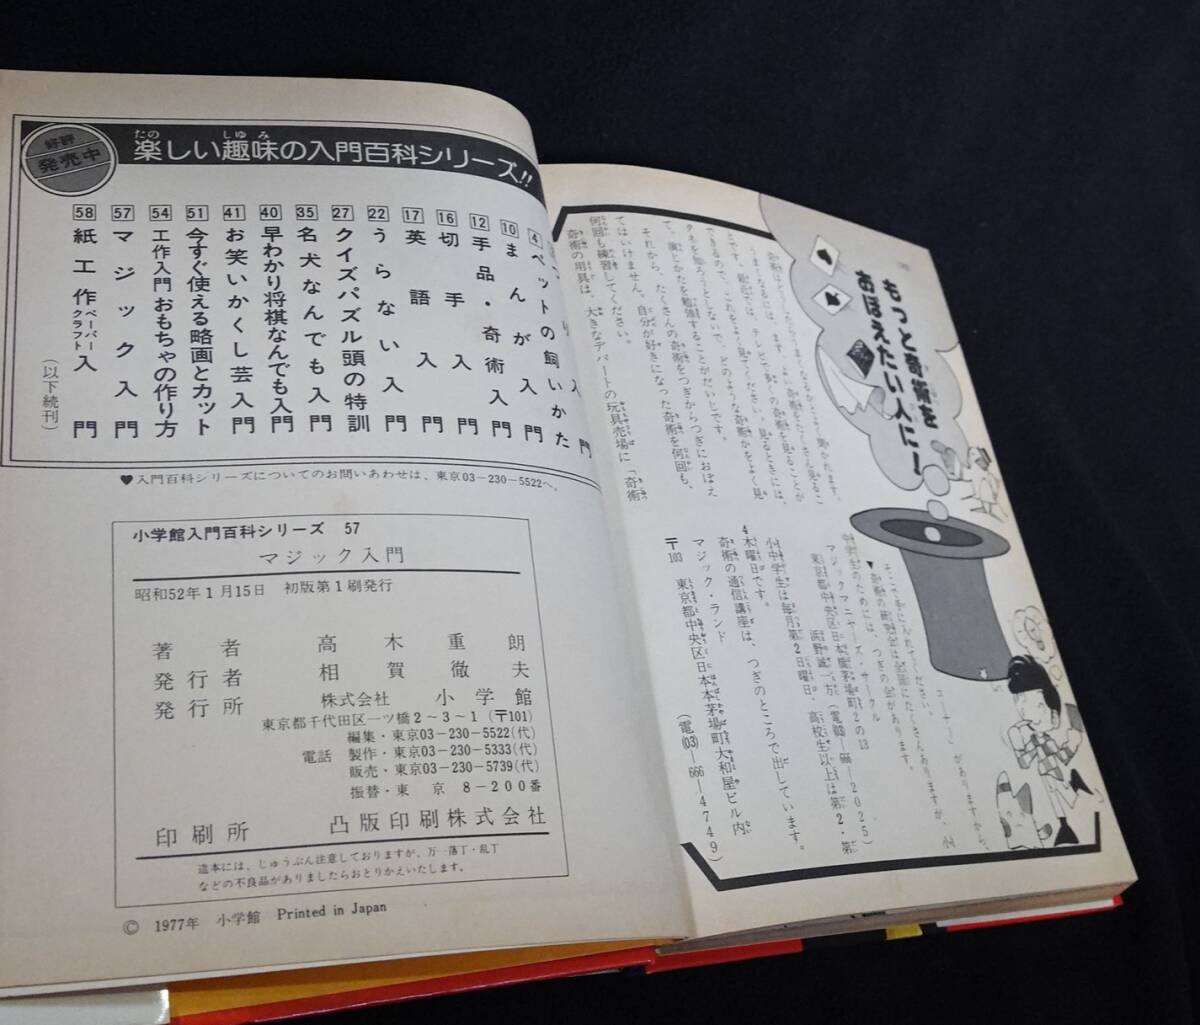 もっと奇術を
おぼえたい人に！
タネを知ろうとしないで、どのような奇術かをよく見
て、演じかたを勉強することがだいじです。
それから、たくさんの奇術をつぎからつぎにおぼえ
てはいけません。自分が好きになった奇術を何回も、
何回も練習してください。
奇術の用具は、大きなデパートの玩具売場に「奇術
コーナー」がありますから、
そこで手に入れてください。
マジックマニヤーズ・サークル
東京都中央区日本橋茅場町2の13
浜野誠一方（電03—666—2025）
小中学生は毎月第2日曜日、高校生以上は第2・第
4木曜日です。
奇術の通信講座は、つぎのところで出しています。
マジック・ランド
〒103 東京都中央区日本橋茅場町大和屋ビル内
（電(03)—666—4749）
好評
発売中
楽しい趣味の入門百科シリーズ!!
たの
しゅみ
門
4 ペットの飼いかた
10 まんが入門
12 手品・奇術入門
16 切手入門
17 英語入門
22 うらない入門
27 クイズパズル頭の特訓
35 名犬なんでも入門
40 早わかり将棋なんでも入門
41 お笑いかくし芸入門
51 今すぐ使える略画とカット
54 工作入門おもちゃの作り方
57 マジック入門
58 紙工作ペーパークラフト入門
（以下続刊）
♥入門百科シリーズについてのお問いあわせは、東京03−230−5522へ。
小学館入門百科シリーズ 57
マジック入門
昭和52年1月15日 初版第1刷発行
著者 高木重朗
発行者 相賀徹夫
発行所 株式会社 小学館
東京都千代田区一ツ橋2〜3〜1（〒101）
編集・東京03−230−5522(代)
電話 製作・東京03−230−5333(代)
販売・東京03−230−5739(代)
振替・東京 8−200番
印刷所 凸版印刷株式会社
造本には、じゅうぶん注意しておりますが、万一落丁・乱丁
などの不良品がありましたらおとりかえいたします。
© 1977年 小学館 Printed in Japan